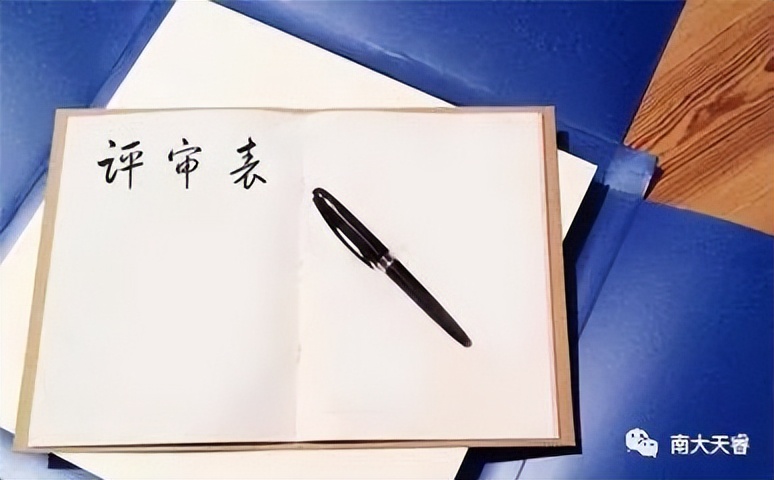 评审表
南大天睿